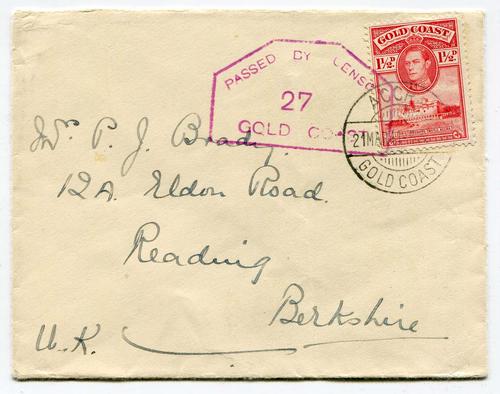 GOLD COAST
1½D 1½D
PASSED BY CENSOR
27
GOLD COAST
ACCRA
21MA
GOLD COAST
Mr P. J. Brady,
12A Eldon Road.
Reading
Berkshire
U.K.